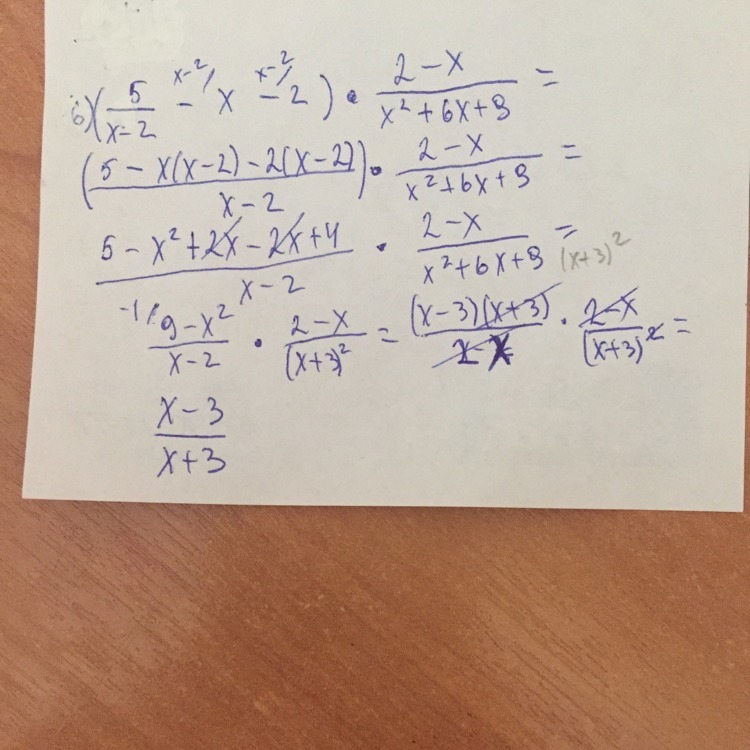 б) (5/(x-2) - x - 2) • (2-x)/(x²+6x+9) =
((5 - x(x-2) - 2(x-2))/(x-2)) • (2-x)/(x²+6x+9) =
(5 - x² + 2x - 2x + 4)/(x-2) • (2-x)/(x²+6x+9) = (x+3)²
-1/ (9-x²)/(x-2) • (2-x)/(x+3)² = ((x-3)(x+3))/(2-x) • (2-x)/(x+3)² =
(x-3)/(x+3)